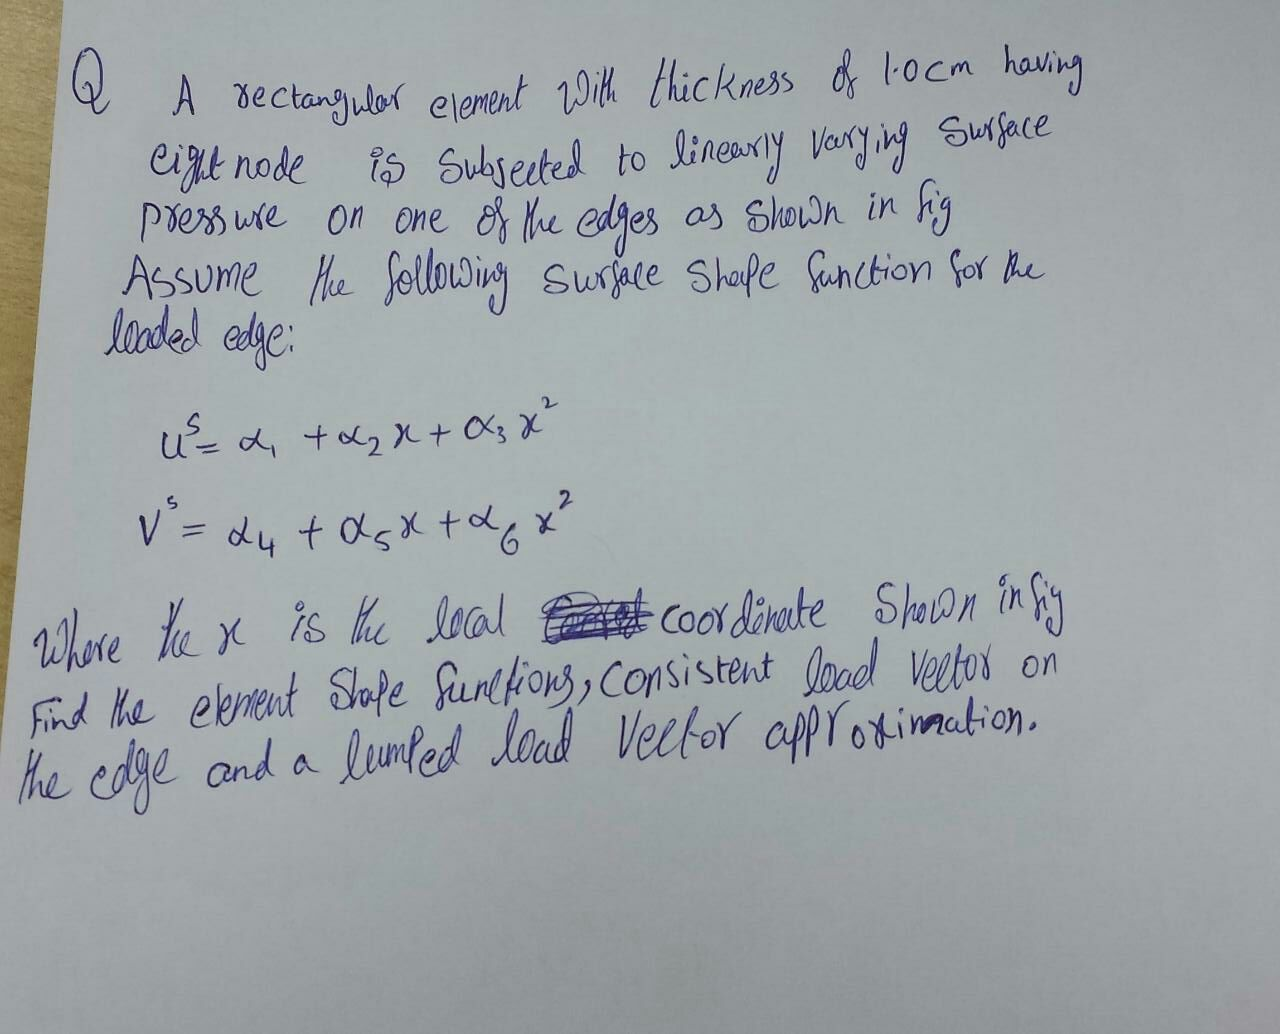 Q A rectangular element with thickness of 1.0cm having
eight node is Subjected to linearly varying surface
pressure on one of the edges as shown in fig
Assume the following surface shape function for the
loaded edge:
uˢ = α₁ + α₂ x + α₃ x²
vˢ = α₄ + α₅ x + α₆ x²
Where the x is the local coordinate Shown in fig
Find the element shape functions, consistent load vector on
the edge and a lumped load vector approximation.